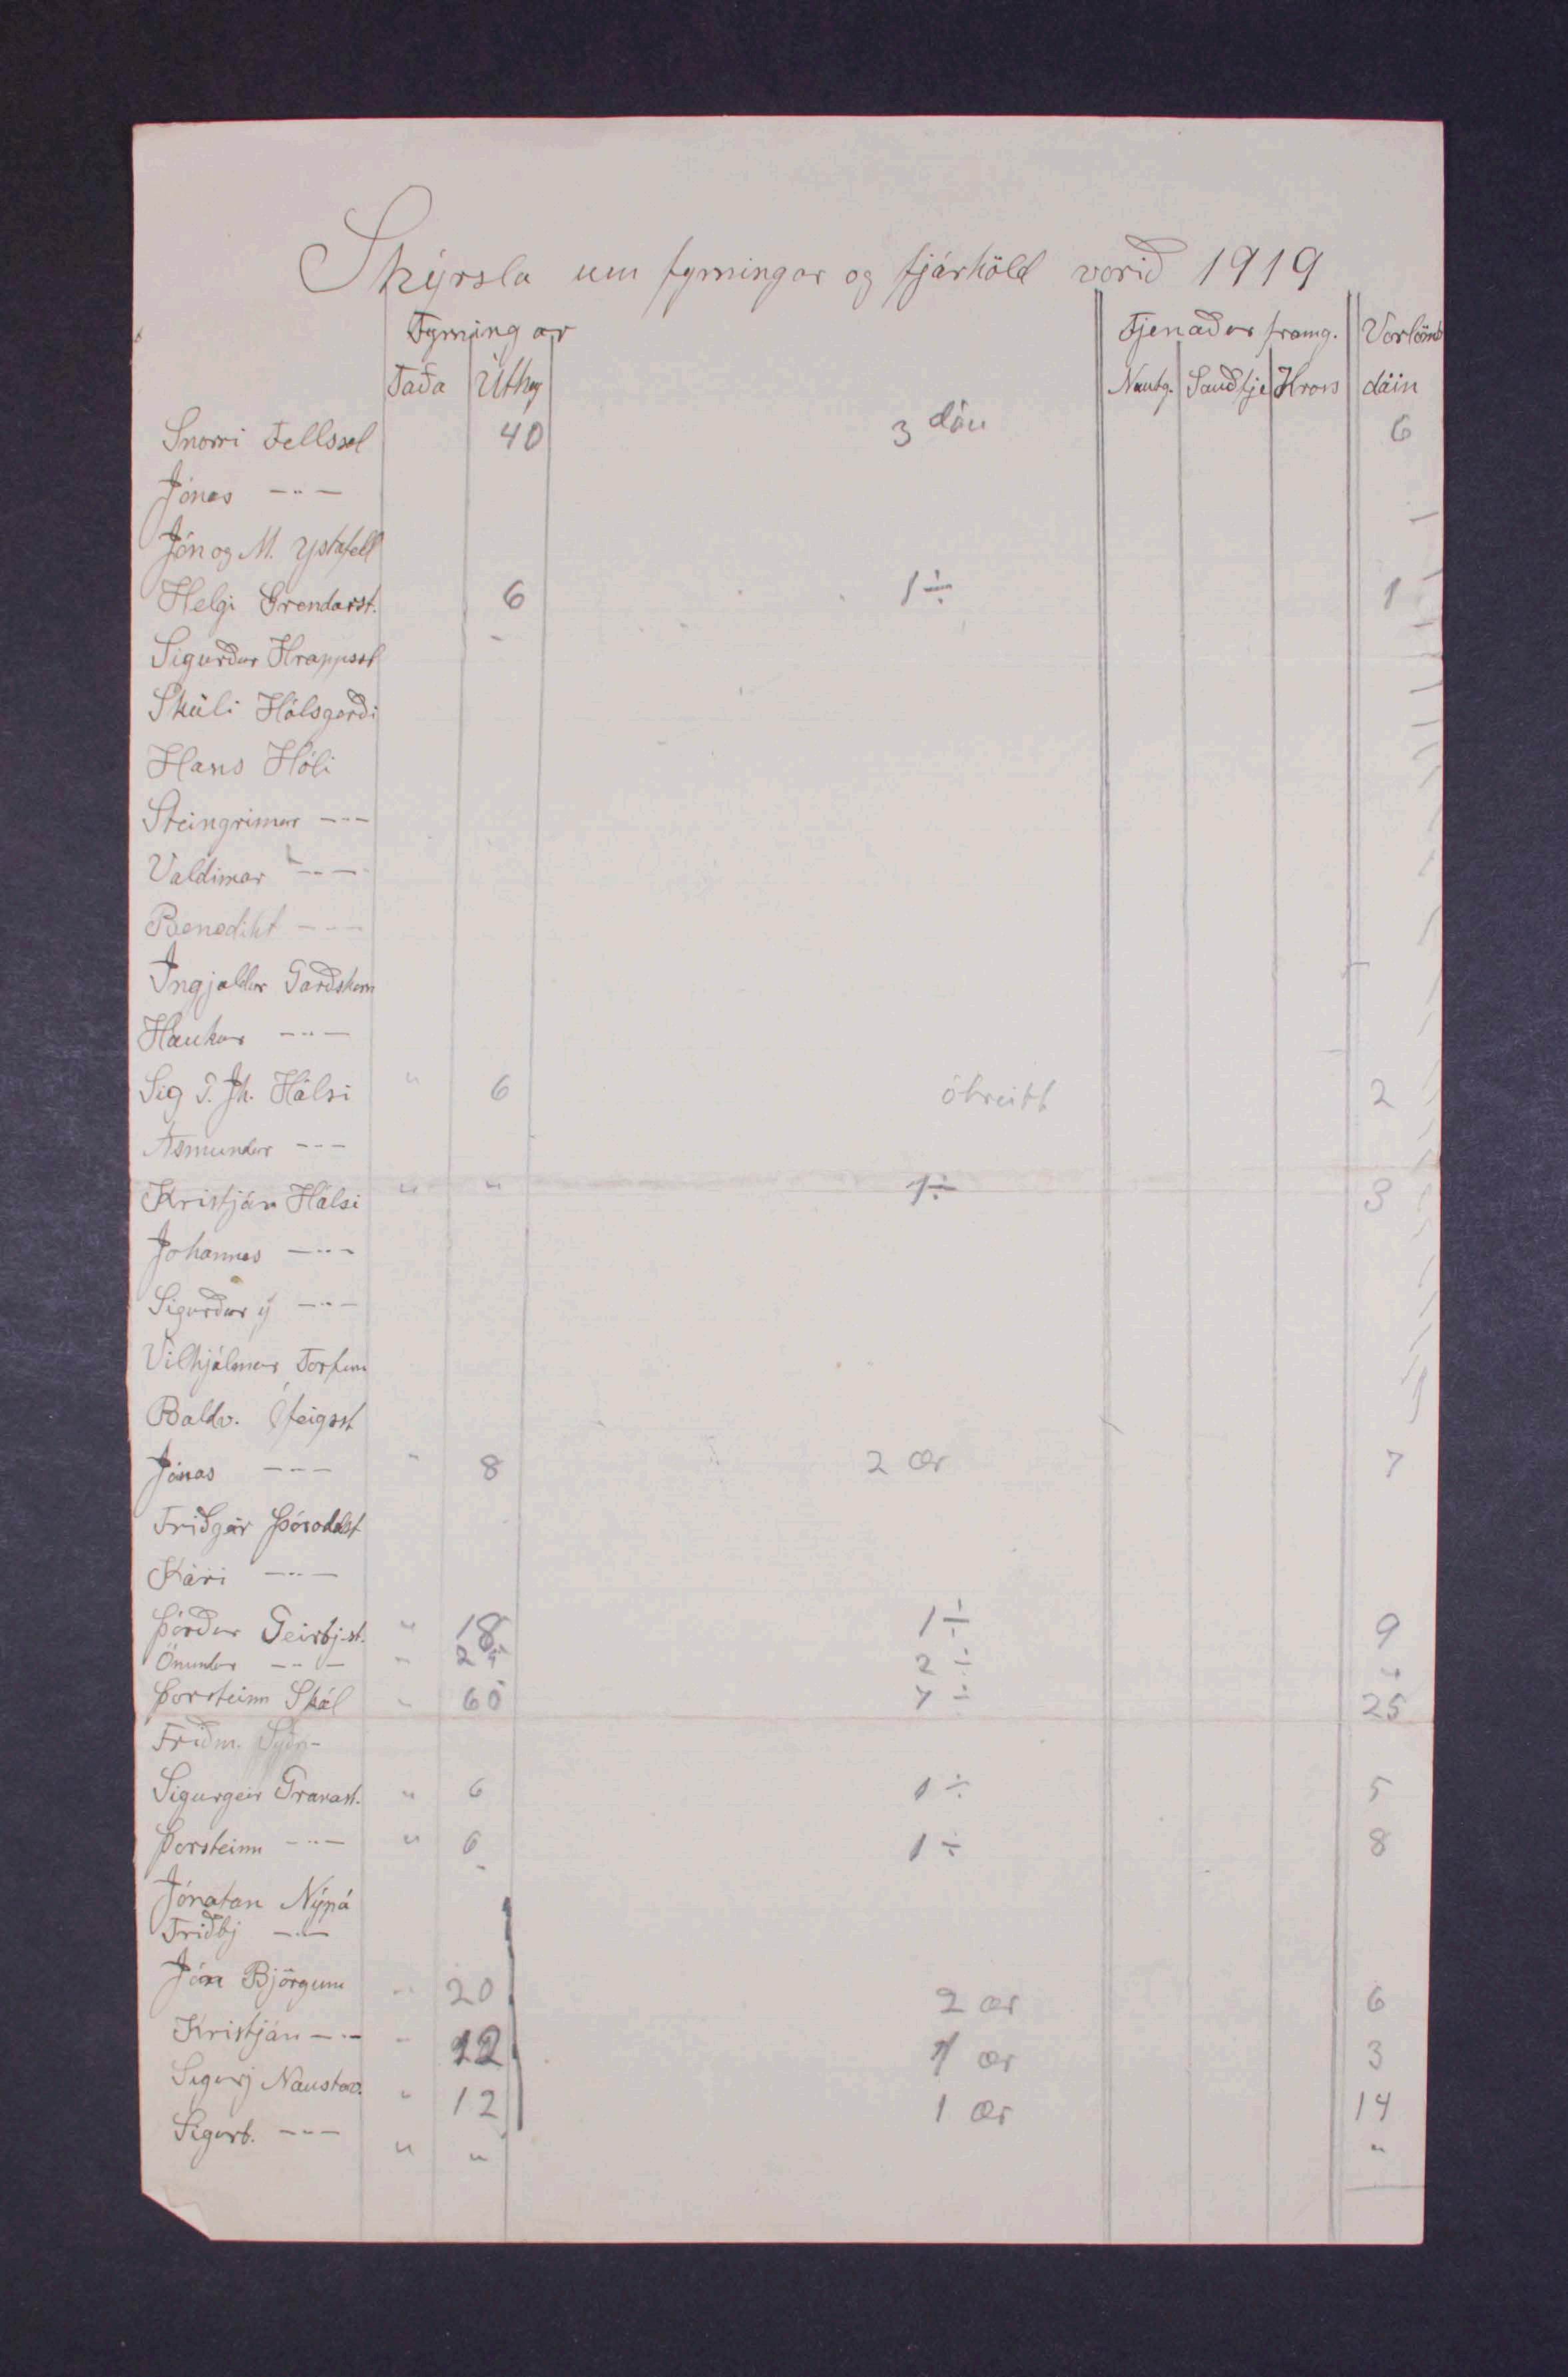 Skýrsla um fyrningar og fjárhöld vorið 1919
Fyrningar Fjenaður framg. Vorlömb
Taða Úthey Nautg. Sauðfje Hross dáin
Snorri Fellssel 40 3 dáu 6
Jónas — " —
Jón og M. Ystafell
Helgi Grendarst. 6 1 ÷ 1
Sigurður Hrappsst
Skúli Hálsgerði
Hans Hóli
Steingrimur — " —
Valdimar — " —
Benedikt — " —
Ingjaldur Garðshorn
Haukur — " —
Sig G. Jh. Hálsi " 6 óbreitt 2
Ásmundur — " —
Kristján Hálsi " " 1 ÷ 3
Johannes — " —
Sigurður ý — " —
Vilhjálmur Torfun
Baldv. Ófeigsst
Jónas — " — " 8 2 ær 7
Friðgeir Þóroddst
Kári — " —
Þórður Geirbjst. " 18 1 ÷ 9
Önundur — " — " 25 2 ÷ "
Þorsteinn Skál " 60 7 ÷ 25
Friðm. Syðri-
Sigurgeir Granast. " 6 1 ÷ 5
Þorsteinn — " — " 6 1 ÷ 8
Jónatan Nýpá
Friðbj — " —
Jón Björgum " 20 2 ær 6
Kristján — " — " 12 1 ær 3
Sigurj Naustav. " 12 1 ær 14
Sigurb. — " — " " "